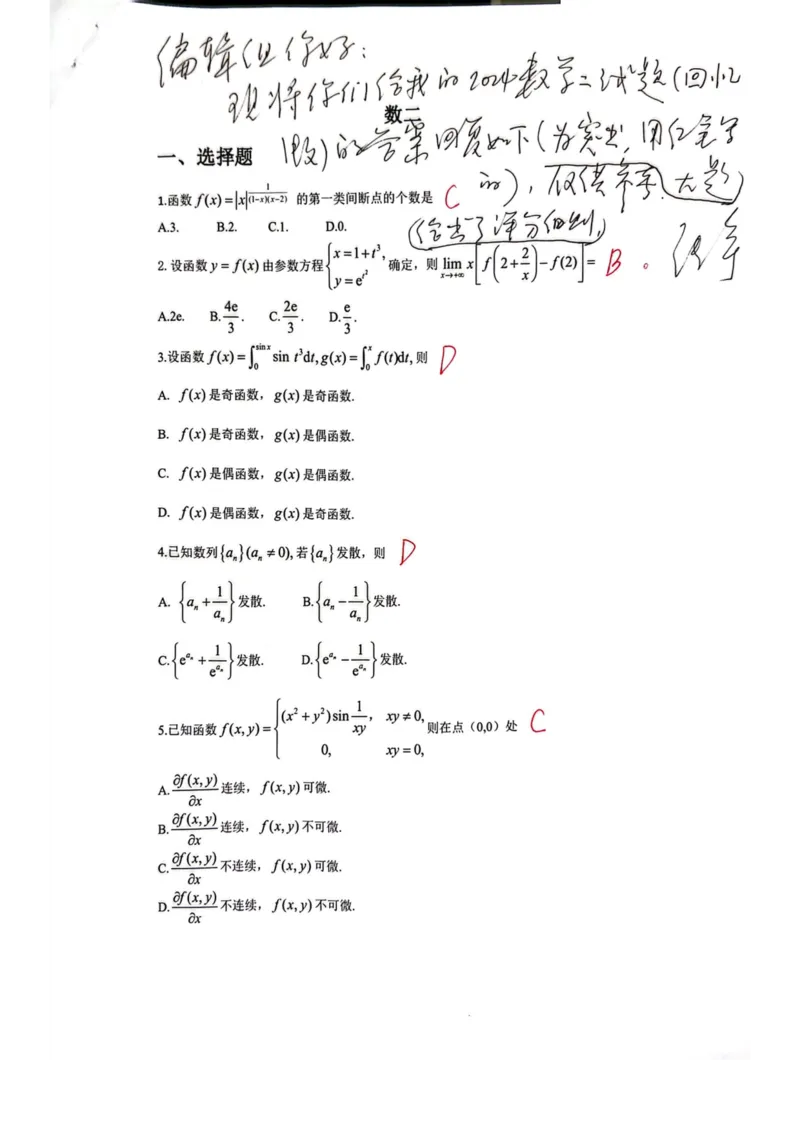 编辑们你好：
现将你们给我的2024数学二试题(回忆
数二
版)的答案回复如下(为突出,用红笔写
一、选择题
的),仅供参考.大题
1.函数 f(x)=|x|^{\frac{1}{(1-x)(x-2)}} 的第一类间断点的个数是 C
(给出了评分细则.)
A.3. B.2. C.1. D.0.
2. 设函数 y=f(x) 由参数方程 \begin{cases} x=1+t^3, \\ y=e^{t^2} \end{cases} 确定，则 \lim_{x→+∞} x[f(2+\frac{2}{x})-f(2)]= B 。
A.2e. B.\frac{4e}{3}. C.\frac{2e}{3}. D.\frac{e}{3}.
3.设函数 f(x)=∫_0^{sin x} sin t^3dt, g(x)=∫_0^x f(t)dt, 则 D
A. f(x)是奇函数，g(x)是奇函数.
B. f(x)是奇函数，g(x)是偶函数.
C. f(x)是偶函数，g(x)是偶函数.
D. f(x)是偶函数，g(x)是奇函数.
4.已知数列{a_n}(a_n≠0),若{a_n}发散，则 D
A. {a_n+\frac{1}{a_n}}发散. B.{a_n-\frac{1}{a_n}}发散.
C.{e^{a_n}+\frac{1}{e^{a_n}}}发散. D.{e^{a_n}-\frac{1}{e^{a_n}}}发散.
5.已知函数 f(x,y)=\begin{cases} (x^2+y^2)sin\frac{1}{xy}， xy≠0, \\ 0, xy=0, \end{cases} 则在点（0,0）处 C
A.\frac{∂f(x,y)}{∂x}连续，f(x,y)可微.
B.\frac{∂f(x,y)}{∂x}连续，f(x,y)不可微.
C.\frac{∂f(x,y)}{∂x}不连续，f(x,y)可微.
D.\frac{∂f(x,y)}{∂x}不连续，f(x,y)不可微.